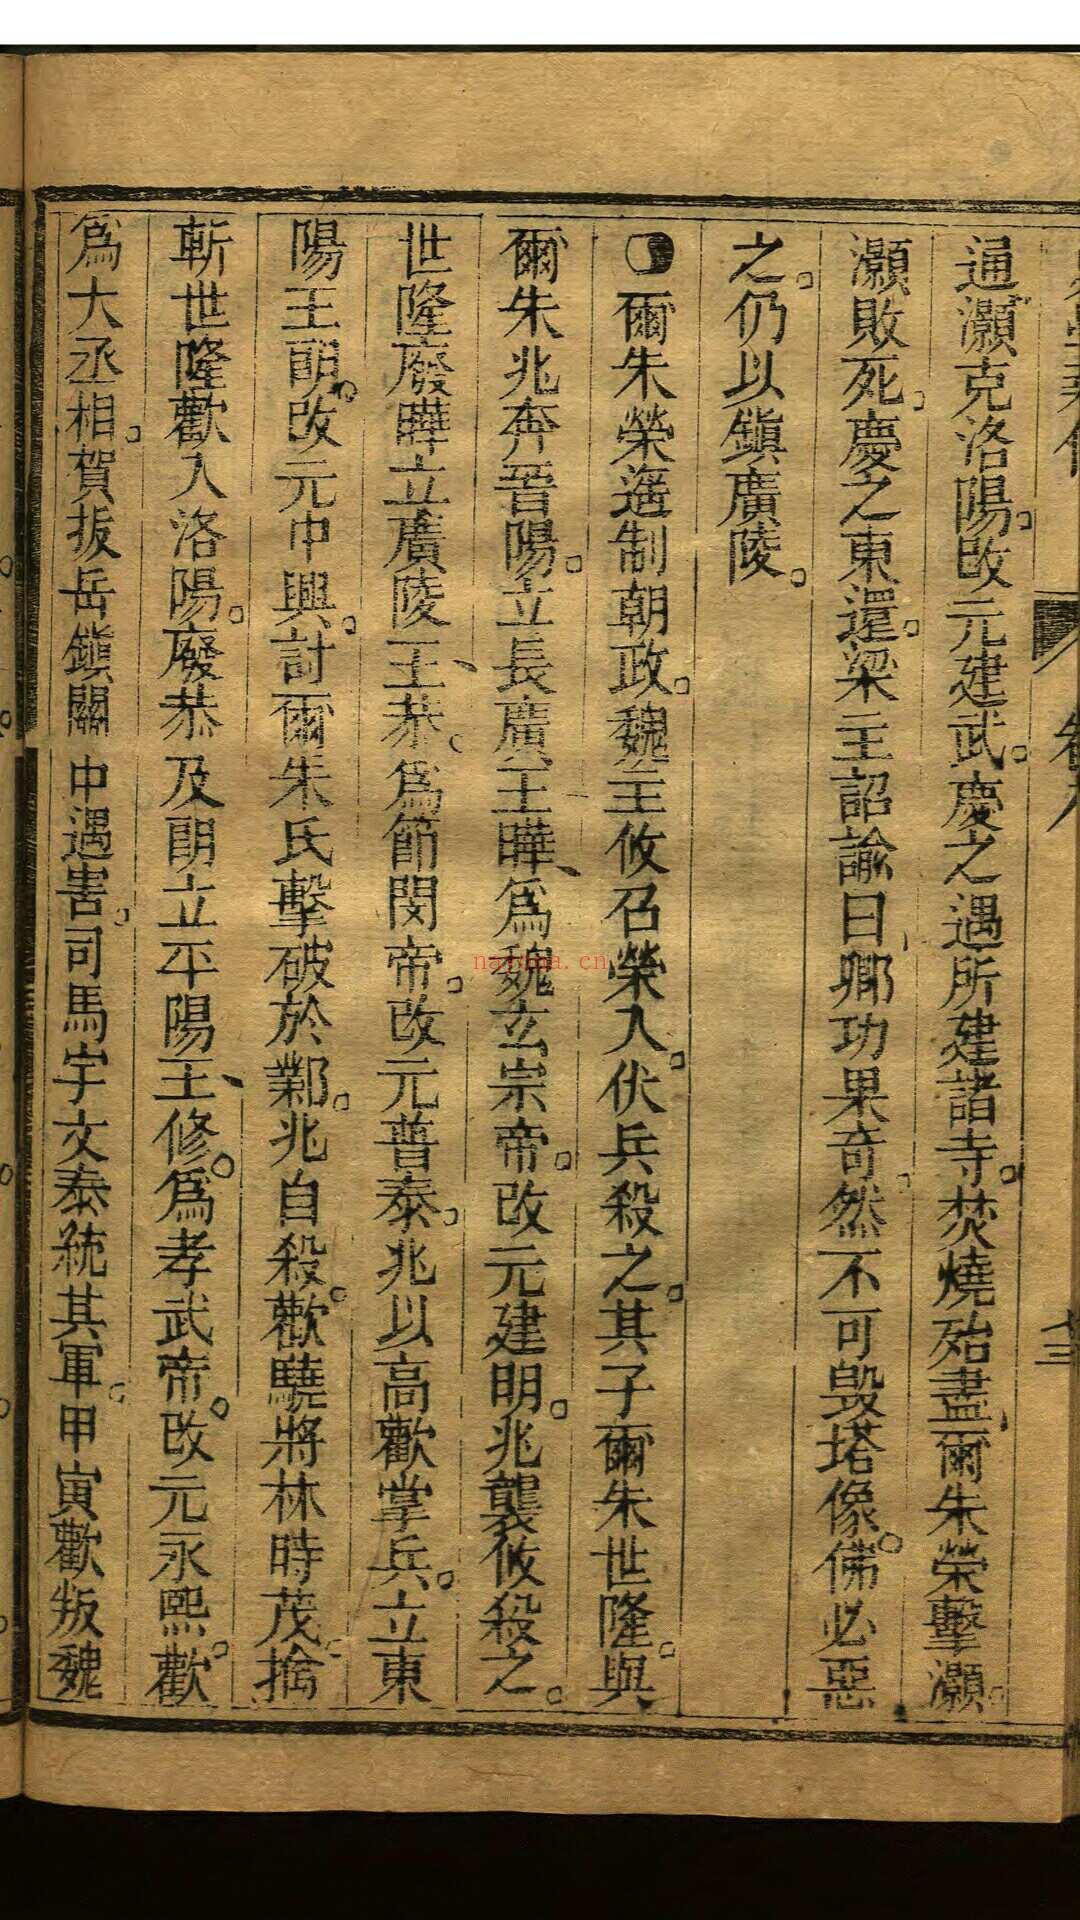 通灝克洛陽。改元建武。慶之遇所建諸寺。焚燒殆盡、爾朱榮擊灝。
灝敗死。慶之東還。梁主詔諭曰、鄉功果奇。然不可毀塔像。佛必惡
之。仍以鎮廣陵。
爾朱榮遥制朝政。魏主攸召榮入。伏兵殺之。其子爾朱世隆。與
爾朱兆奔晉陽。立長廣王曄、爲魏玄宗帝。改元建明。兆襲攸殺之。
世隆廢曄立廣陵王、恭。爲節閔帝。改元普泰。兆以高歡掌兵。立東
陽王朗。改元中興。討爾朱氏擊破於鄴。兆自殺。歡驍將林時茂擒
斬世隆歡入洛陽。廢恭及朗立平陽王、修。爲孝武帝。改元永熙。歡
爲大丞相。賀拔岳鎮關中遇害。司馬宇文泰統其軍。甲寅歡叛魏
卷九
十三
nayona.cn